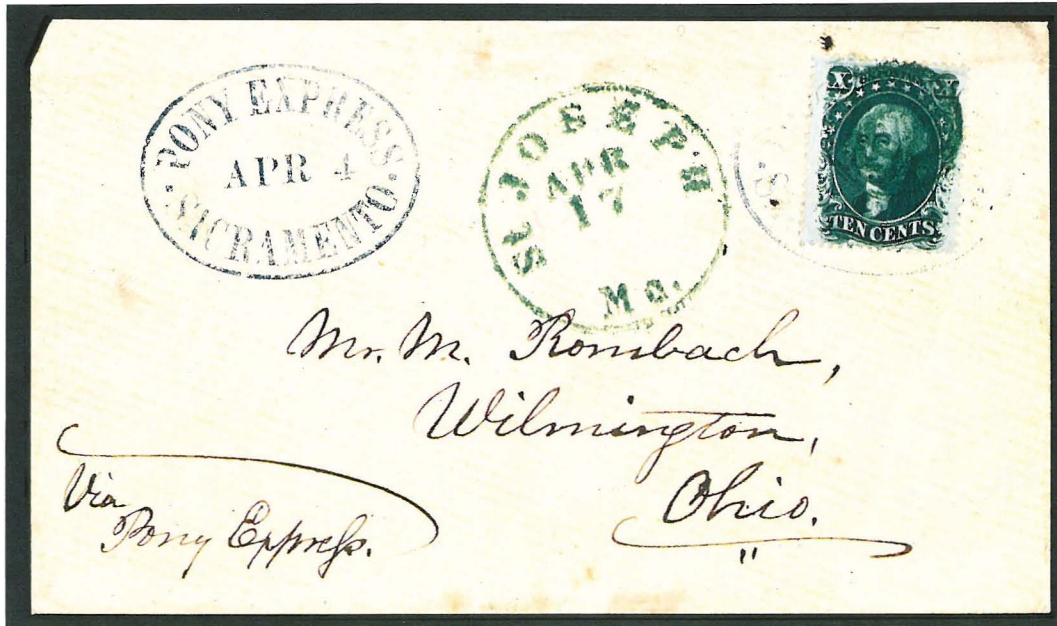 PONY EXPRESS
APR 4
SACRAMENTO
St JOSEPH
APR
17
Mo.
X
TEN CENTS
Mr. M. Rombach,
Wilmington,
Ohio.
Via
Pony Express.